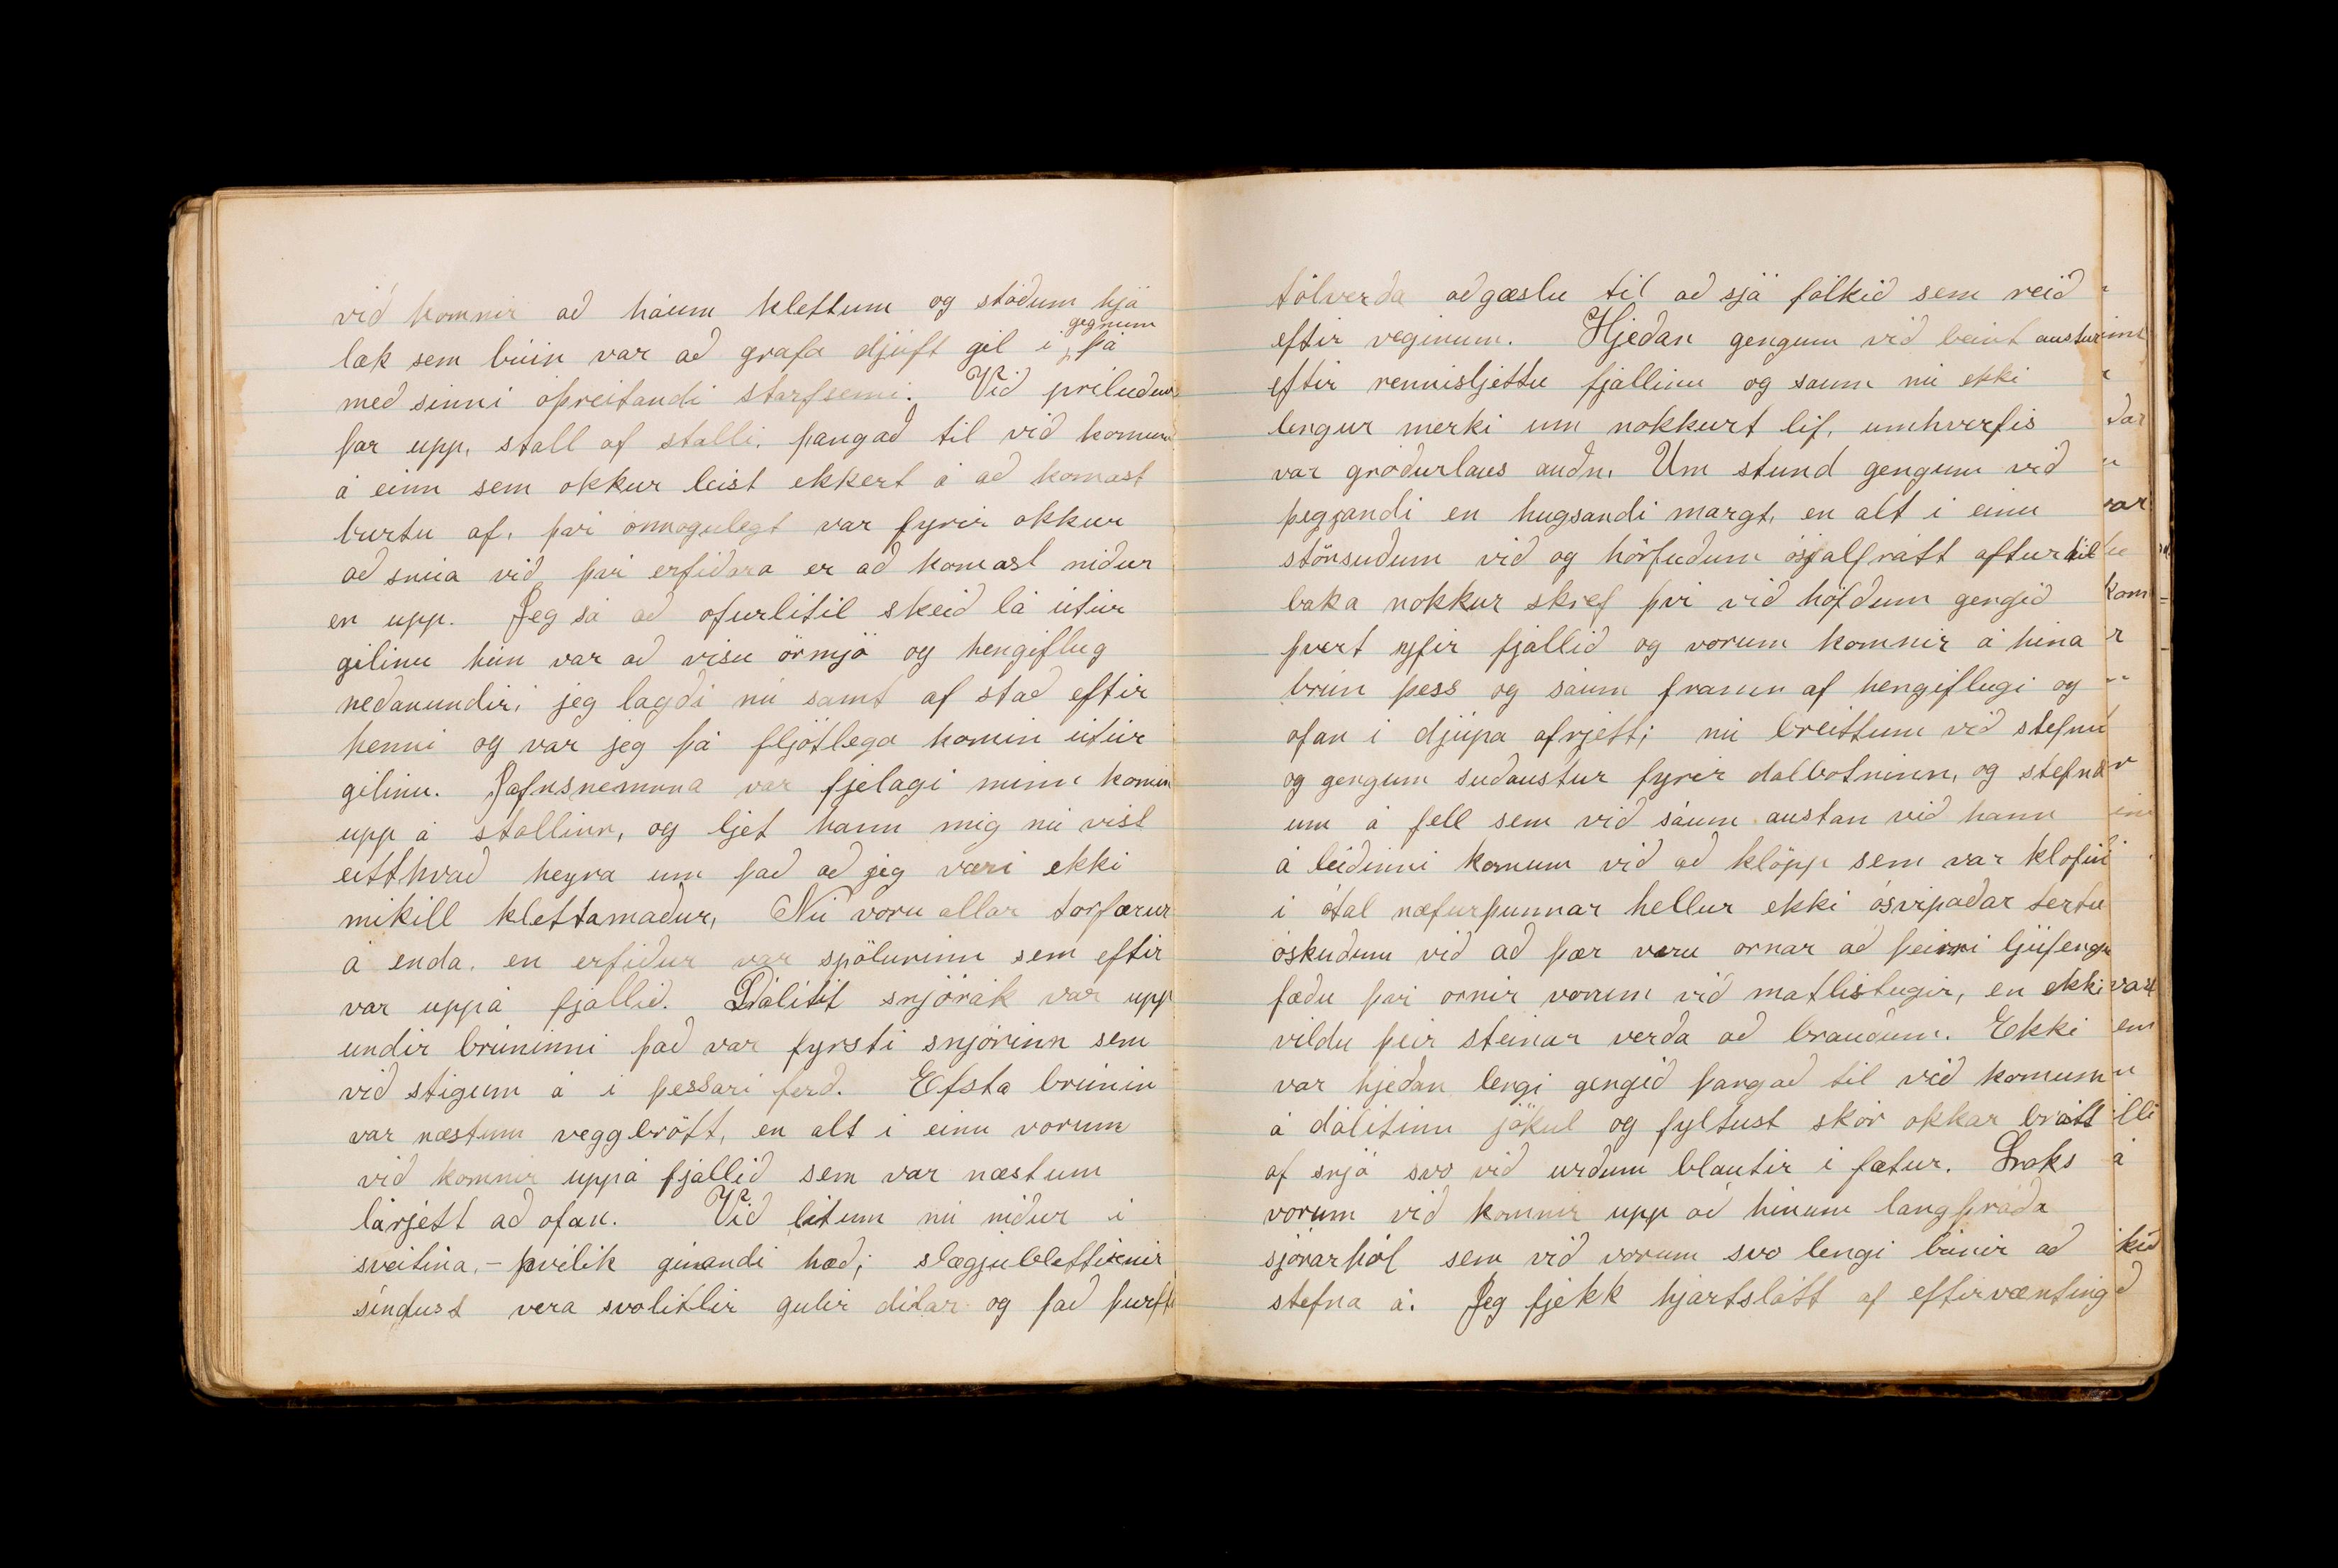 við komnir að háum klettum og stöðum hjá
læk sem búin var að grafa djúft gil í gegnum þá
með sinni óþreitandi starfsemi. Við príluðum
þar upp, stall af stalli, þangað til við komum
á einn sem okkur leist ekkert á að komast
burtu af, því ómmögulegt var fyrir okkur
að snúa við því erfiðara er að komast niður
en upp. Jeg sá að ofurlítil skeið lá útúr
gilinu hún var að vísu örmjó og hengiflug
neðanundir, jeg lagði nú samt af stað eftir
henni og var jeg þá fljótlega komin útúr
gilinu. Jafnsnemma var fjelagi minn komin
upp á stallinn, og ljet hann mig nú víst
eitthvað heyra um það að jeg væri ekki
mikill klettamaður, Nú voru allar torfærur
á enda, en erfiður var spölurinn sem eftir
var uppá fjallið. Dálítil snjórák var upp
undir brúninni það var fyrsti snjórinn sem
við stigum á í þessari ferð. Efsta brúnin
var næstum veggbrött, en alt í einu vorum
við komnir uppá fjallið sem var næstum
lárjett að ofan. Við litum nú niður í
sveitina, - þvílík gínandi hæð; slægjublettirnir
síndust vera svolitlir gulir dílar og það þurfti
tölverða aðgæslu til að sjá fólkið sem reið
eftir veginum. Hjeðan gengum við beint austur
eftir rennisljettu fjallinu og sáum nú ekki
lengur merki um nokkurt líf, umhverfis
var gróðurlaus auðn. Um stund gengum við
þegjandi en hugsandi margt, en alt í einu
stönsuðum við og hörfuðum ósjálfrátt aftur til
baka nokkur skref því við höfðum gengið
þvert yfir fjallið og vorum komnir á hina
brún þess og sáum framm af hengiflugi og
ofan í djúpa afrjett; nú breittum við stefnu
og gengum suðaustur fyrir dalbotninn, og stefnd
um á fell sem við sáum austan við hann
á leiðinni komum við að klöpp sem var klofin
í ótal næfurþunnar hellur ekki ósvipaðar tertu
óskuðum við að þær væru ornar að þeirri ljúfengu
fæðu því ornir vorum við matlistugir, en ekki
vildu þeir steinar verða að brauðum. Ekki
var hjeðan lengi gengið þangað til við komum
á dálitinn jökul og fyltust skór okkar brátt
af snjó svo við urðum blautir í fætur. Loks
vorum við komnir upp að hinum langþráða
sjónarhól sem við vorum svo lengi búnir að
stefna á. Jeg fjekk hjartslátt af eftirvænting